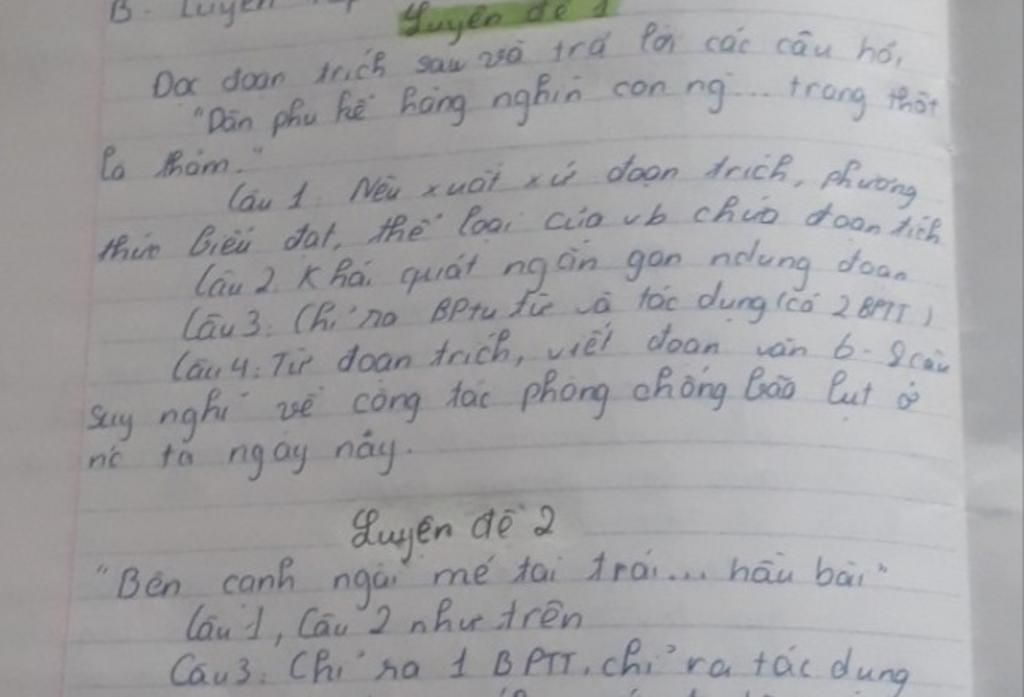 B. Luyện
Luyện đề 1
Đọc đoạn trích sau và trả lời các câu hỏi,
"Dân phu kể hàng nghìn con ng... trang thật
là thảm."
Câu 1. Nêu xuất xứ đoạn trích, phương
thức biểu đạt, thể loại của vb chứa đoạn trích
Câu 2. Khái quát ngắn gọn ndung đoạn
Câu 3: Chỉ ra BPtu từ và tác dụng (có 2 BPTT)
Câu 4: Từ đoạn trích, viết đoạn văn 6-8 câu
suy nghĩ về công tác phòng chống bão lụt ở
nc ta ngày nay.
Luyện đề 2
"Bên cạnh ngài mé tai trái... hầu bài"
Câu 1, Câu 2 như trên
Câu 3: Chỉ ra 1 BPTT, chỉ ra tác dụng